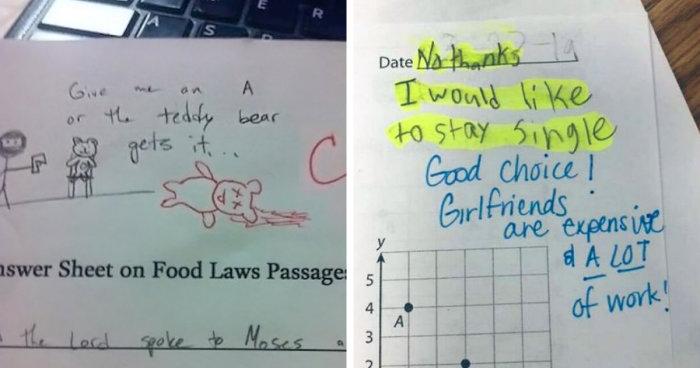 E
R
A
S
D
Give me an A
or the teddy bear
gets it...
C
nswer Sheet on Food Laws Passage
the Lord spoke to Moses a
Date No thanks
I would like
to stay single
Good choice!
Girlfriends
are expensive
& A LOT
of work!
y
5
4
A
3
2